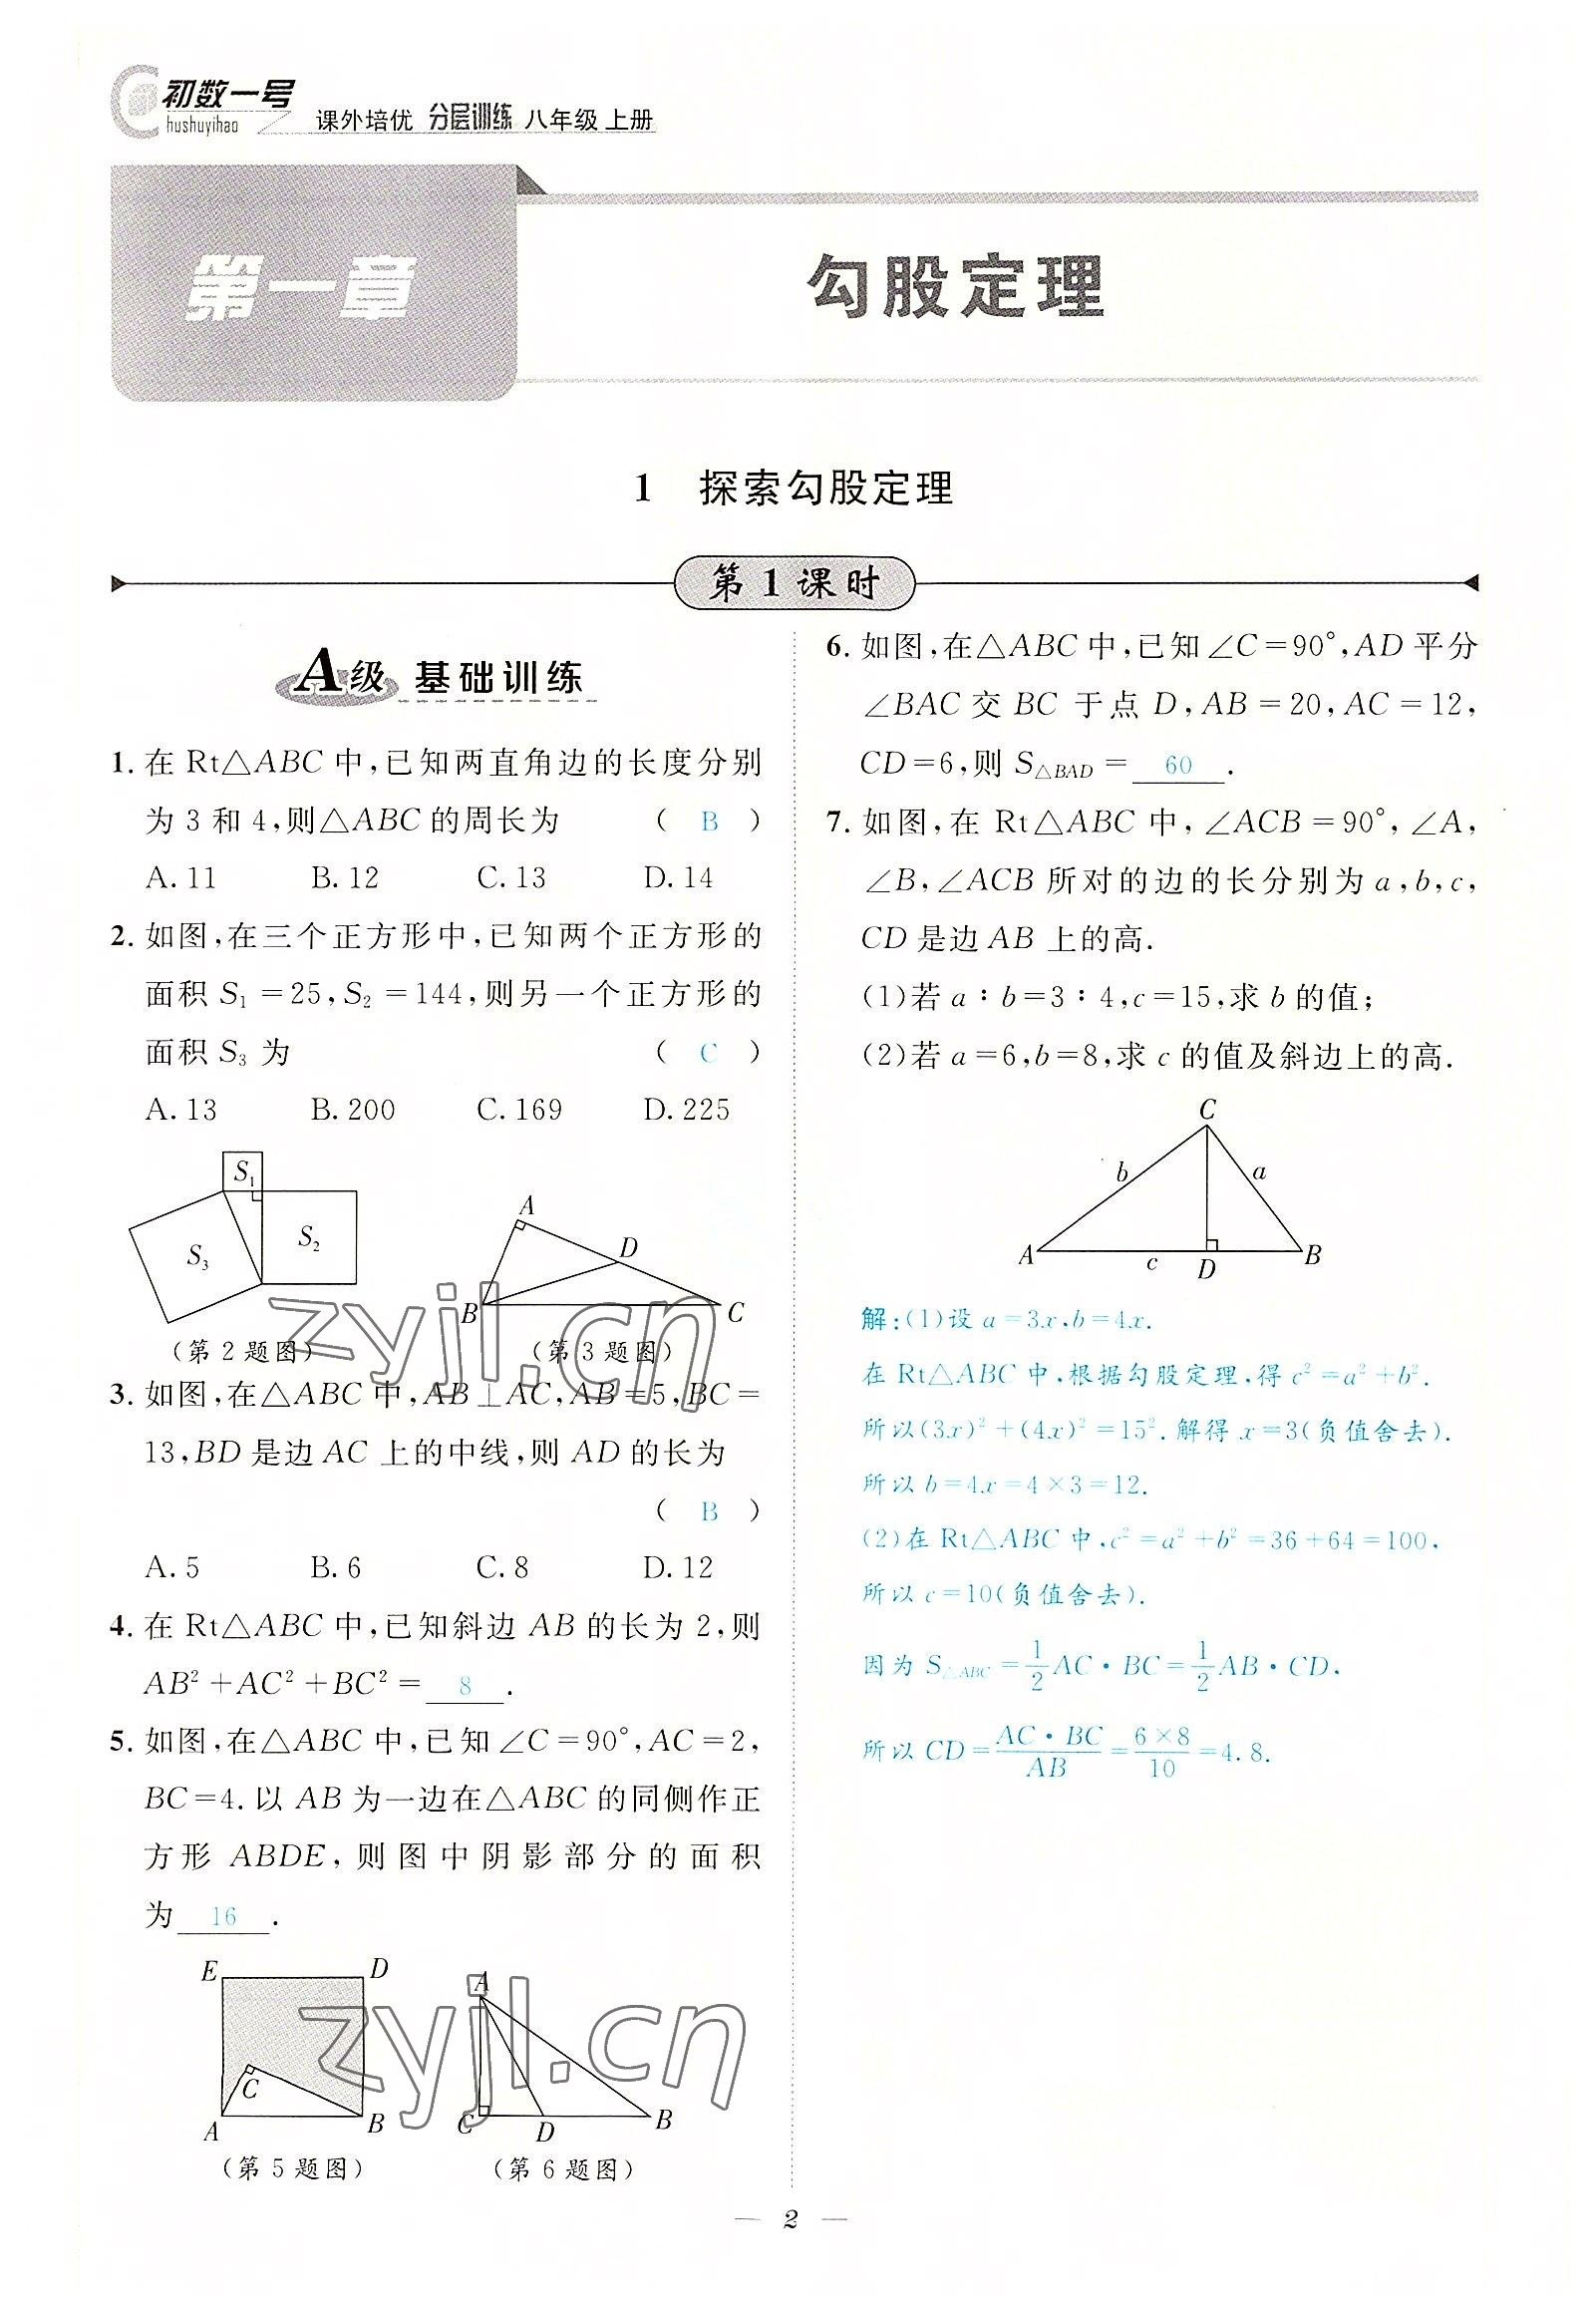 初数一号
chushuyihao
课外培优 分层训练 八年级 上册
第一章
勾股定理
1 探索勾股定理
第1课时
A级 基础训练
1. 在 Rt△ABC 中,已知两直角边的长度分别
为 3 和 4,则△ABC 的周长为 ( B )
A. 11 B. 12 C. 13 D. 14
2. 如图,在三个正方形中,已知两个正方形的
面积 S₁=25,S₂=144,则另一个正方形的
面积 S₃ 为 ( C )
A. 13 B. 200 C. 169 D. 225
S₁
S₂
S₃
(第 2 题图)
A
D
B
C
(第 3 题图)
3. 如图,在△ABC 中,AB⊥AC,AB=5,BC=
13,BD 是边 AC 上的中线,则 AD 的长为
( B )
A. 5 B. 6 C. 8 D. 12
4. 在 Rt△ABC 中,已知斜边 AB 的长为 2,则
AB²+AC²+BC²= 8 .
5. 如图,在△ABC 中,已知∠C=90°,AC=2,
BC=4. 以 AB 为一边在△ABC 的同侧作正
方形 ABDE,则图中阴影部分的面积
为 16 .
E D
C
A B
(第 5 题图)
A
C D B
(第 6 题图)
6. 如图,在△ABC 中,已知∠C=90°,AD 平分
∠BAC 交 BC 于点 D,AB=20,AC=12,
CD=6,则 S△BAD= 60 .
7. 如图,在 Rt△ABC 中,∠ACB=90°,∠A,
∠B,∠ACB 所对的边的长分别为 a,b,c,
CD 是边 AB 上的高.
(1)若 a∶b=3∶4,c=15,求 b 的值;
(2)若 a=6,b=8,求 c 的值及斜边上的高.
C
b a
A c D B
解:(1)设 a=3x,b=4x.
在 Rt△ABC 中,根据勾股定理,得 c²=a²+b².
所以(3x)²+(4x)²=15². 解得 x=3(负值舍去).
所以 b=4x=4×3=12.
(2)在 Rt△ABC 中,c²=a²+b²=36+64=100,
所以 c=10(负值舍去).
因为 S△ABC=1/2 AC·BC=1/2 AB·CD,
所以 CD=AC·BC/AB=6×8/10=4.8.
zyjl.cn
zyjl.cn
— 2 —